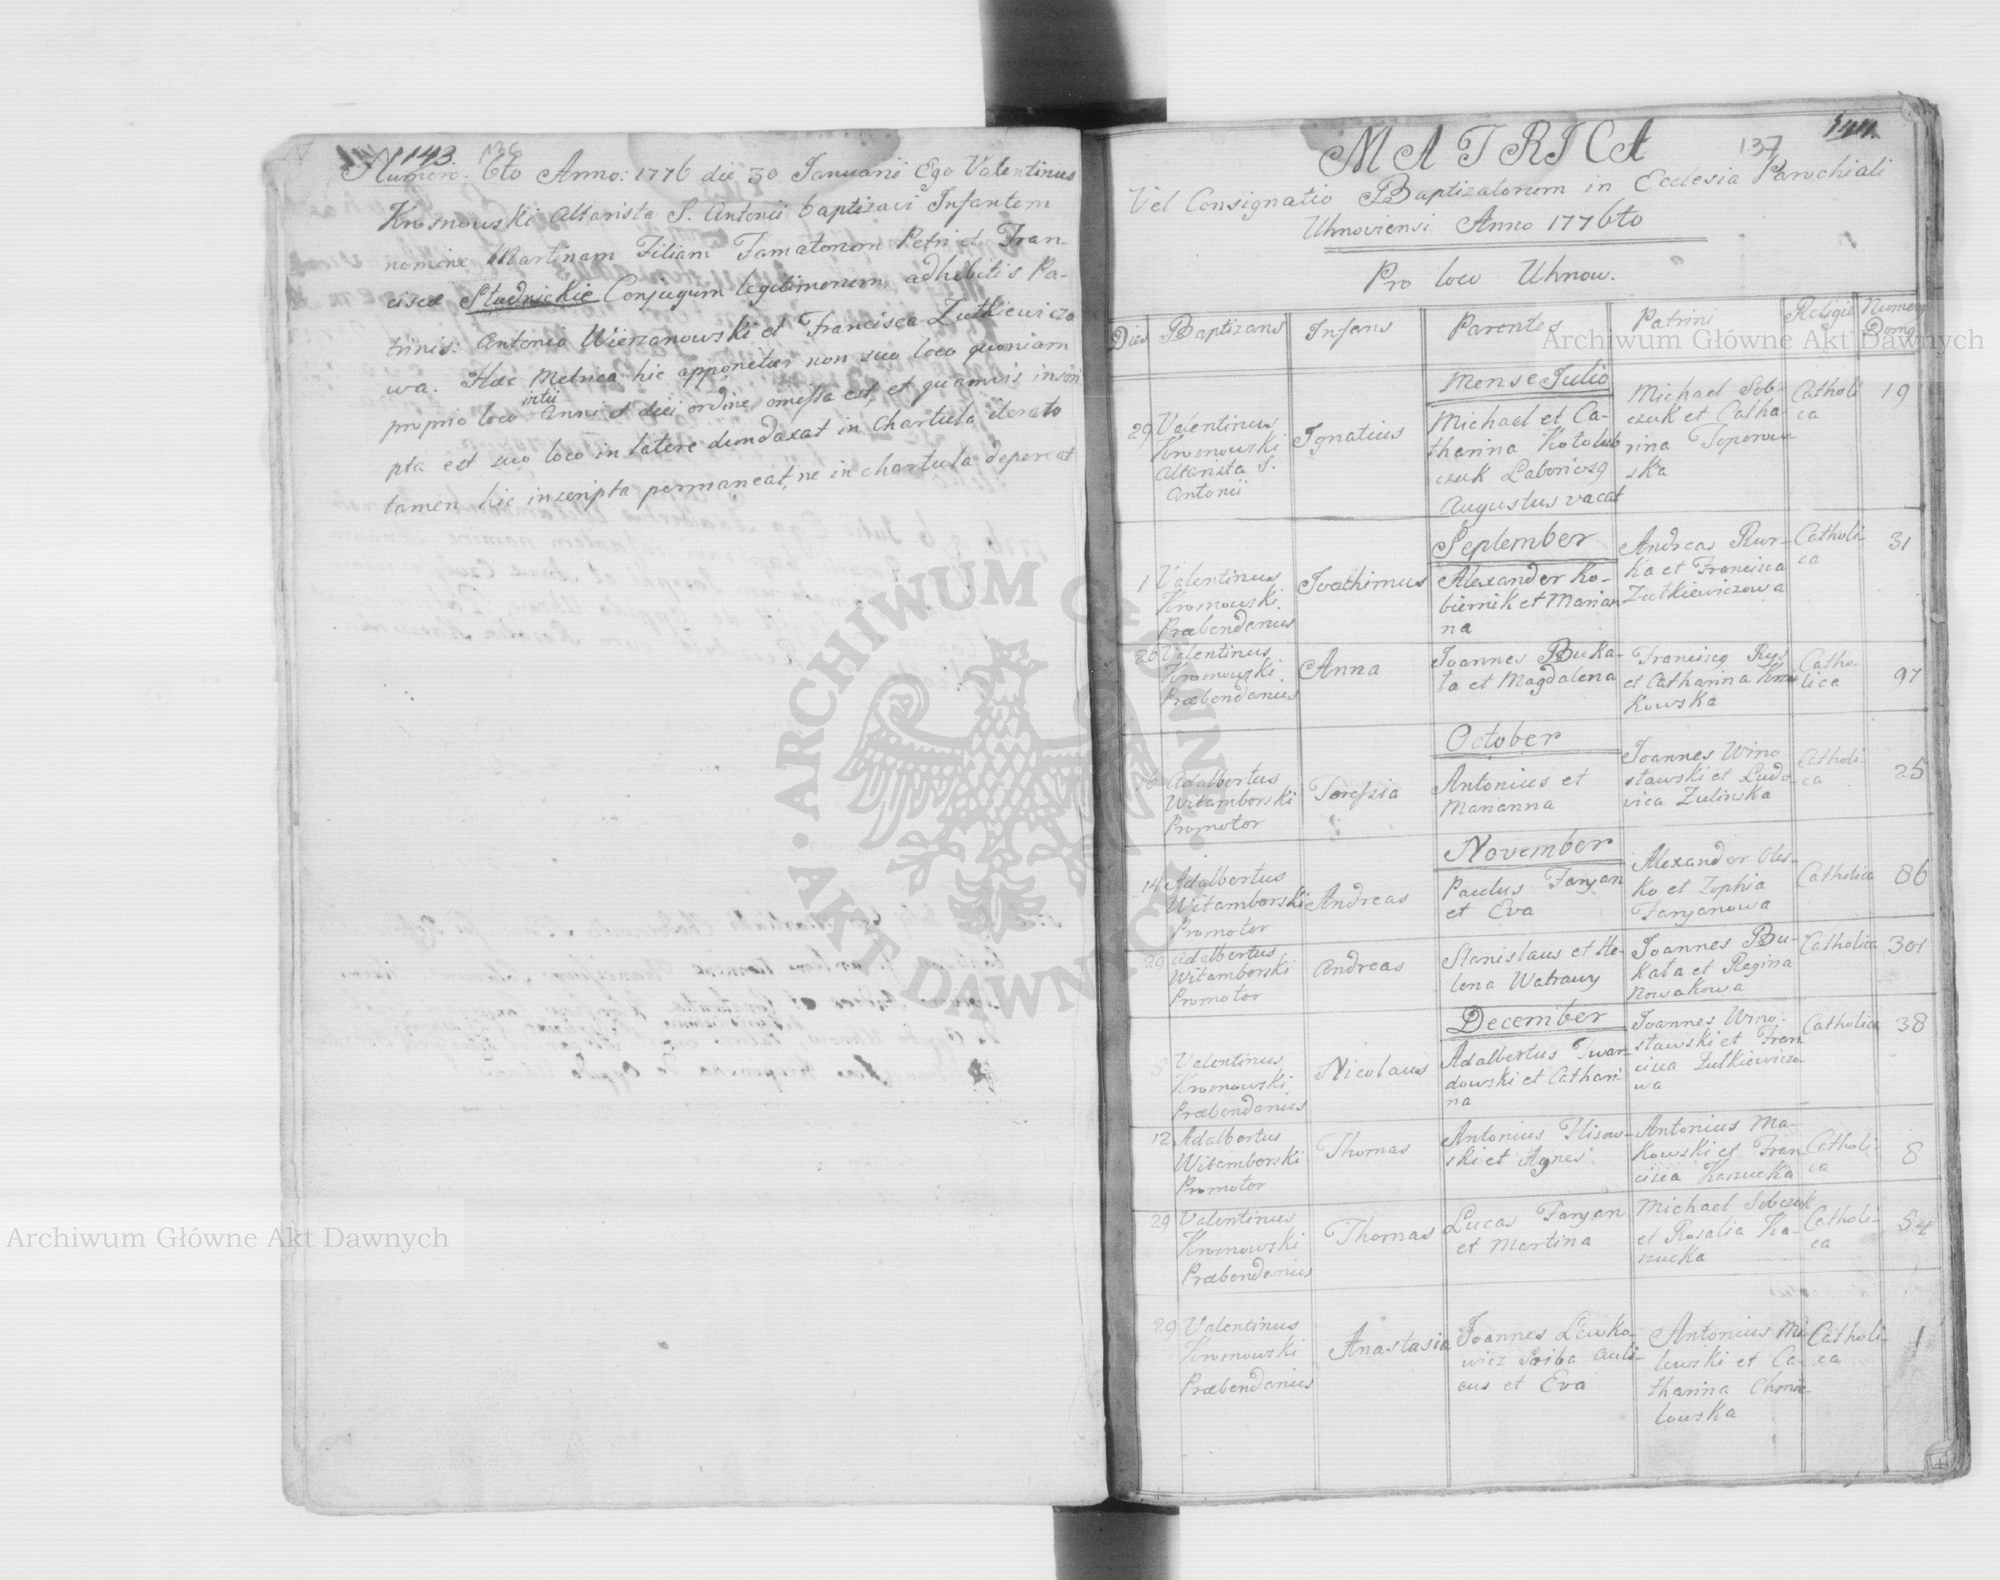 143. 136
Numero. 6to Anno: 1776 die 30 Januarii Ego Valentinus
Kromowski Altarista S. Antonii baptizavi Infantem
nomine Martinam Filiam Famatorum Petri et Fran-
ciscæ Studnickie Conjugum legitimorum, adhibitis Pa-
trinis: Antonio Wierzanowski et Francisca Zutkiewiczo
wa. Hæc Metrica hic apponetur non suo loco quoniam
proprio loco Anni et diei ordine omissa est, et quamvis inscri
pta est suo loco in latere dundaxat in Chartula iterato
tamen hic inscripta permaneat, ne in chartula depereat
137 144.
MATRICA
Vel Consignatio Baptizatorum in Ecclesia Parochiali
Uhnoviensi Anno 1776to
Pro loco Uhnow.
Dies Baptizans Infans Parentes Patrini Religio Numerus Domq
Mense Julio
29 Valentinus
Kromowski
Altarista S.
Antonii
Ignatius
Michael et Ca-
tharina Kotolub
czuk Laboriosq
Augustus vacat
Michael Sob-
czuk et Catha-
rina Toporow-
ska
Catholi
ca
19
September
1 Valentinus
Kromowski
Præbendarius
Joachimus
Alexander Ko-
biernik et Marian
na
Andreas Rur-
ka et Francisca
Zutkiewiczowa
Catholi-
ca
31
20 Valentinus
Kromowski
Præbendarius
Anna
Joannes Buka-
ta et Magdalena
Franciscq Rys
et Catharina
kowska
Catho-
lica
97
October
16 Adalbertus
Witamborski
Promotor
Teressia
Antonius et
Marianna
Joannes Wino
sławski et Ludo-
vica Zulinska
Catholi-
ca
25
November
14 Adalbertus
Witamborski
Promotor
Andreas
Paulus Faryan
et Eva
Alexander Oles-
ko et Zophia
Faryanowa
Catholica
86
29 Adalbertus
Witamborski
Promotor
Andreas
Stanislaus et He-
lena Watrawy
Joannes Bu-
kata et Regina
Nowakowa
Catholica
301
December
5 Valentinus
Kromowski
Præbendarius
Nicolaus
Adalbertus Twar-
dowski et Cathari-
na
Joannes Wino-
sławski et Fran
cisca Zutkiewiczo-
wa
Catholica
38
12 Adalbertus
Witamborski
Promotor
Thomas
Antonius Hisow-
ski et Agnes
Antonius Ma-
kowski et Fran
cisca Kaszucka
Catholi-
ca
8
29 Valentinus
Kromowski
Præbendarius
Thomas
Lucas Faryan
et Martina
Michael Sobczuk
et Rosalia Ka-
szucka
Catholi-
ca
54
29 Valentinus
Kromowski
Præbendarius
Anastasia
Joannes Lewko-
wicz Sciba auli-
cus et Eva
Antonius Mi-
lewski et Ca-
tharina Chmie
lowska
Catholi-
ca
1
Archiwum Główne Akt Dawnych
Archiwum Główne Akt Dawnych
ARCHIWUM GŁÓWNE AKT DAWNYCH